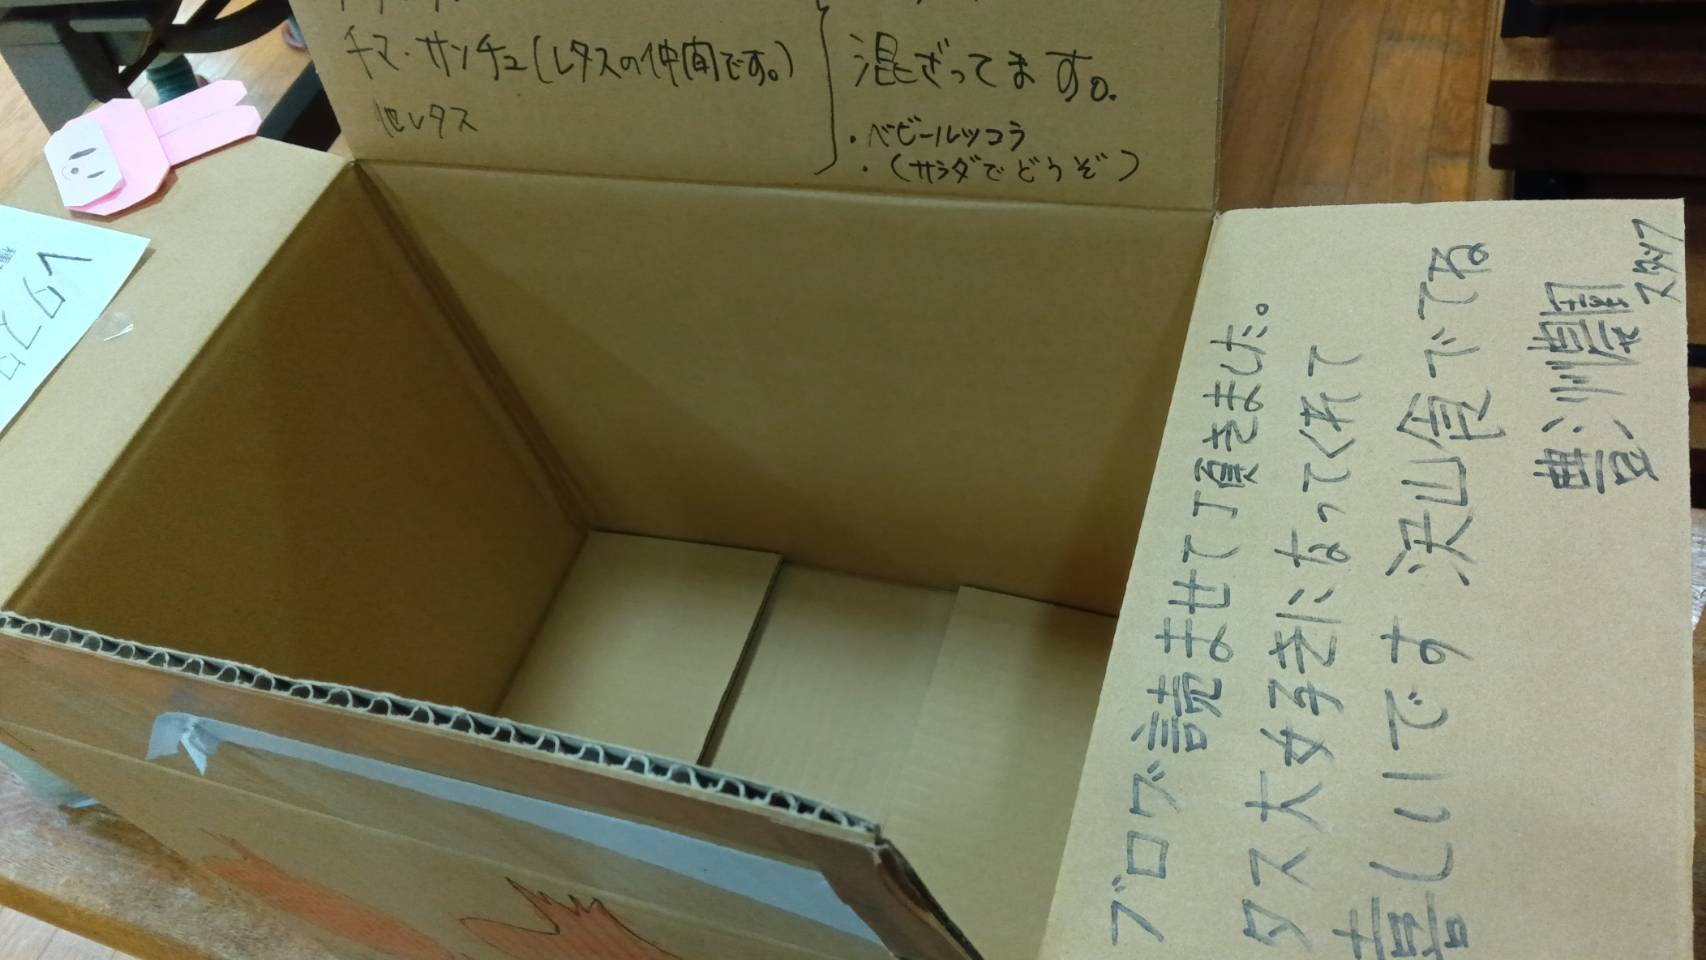 チマ・サンチュ(レタスの仲間です。)
他レタス
混ざってます。
・ベビールッコラ
・(サラダでどうぞ)
ブログ読ませて頂きました。
タス大好きになってくれて
喜しいです 沢山食べてね
豊洲農園
スタッフ
レタスワ